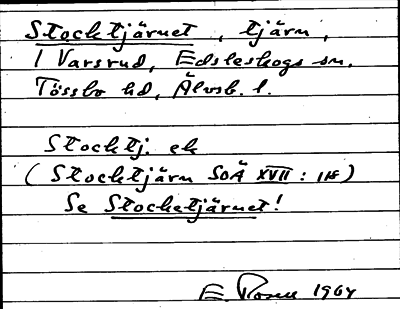 Stocktjärnet, tjärn,
i Varsrud, Edsleskogs sn.
Tössbo hd, Älvsb. l.
Stocktj. ek
(Stocktjärn SOÄ XVII : 118)
Se Stocketjärnet!
E. Rosell 1964